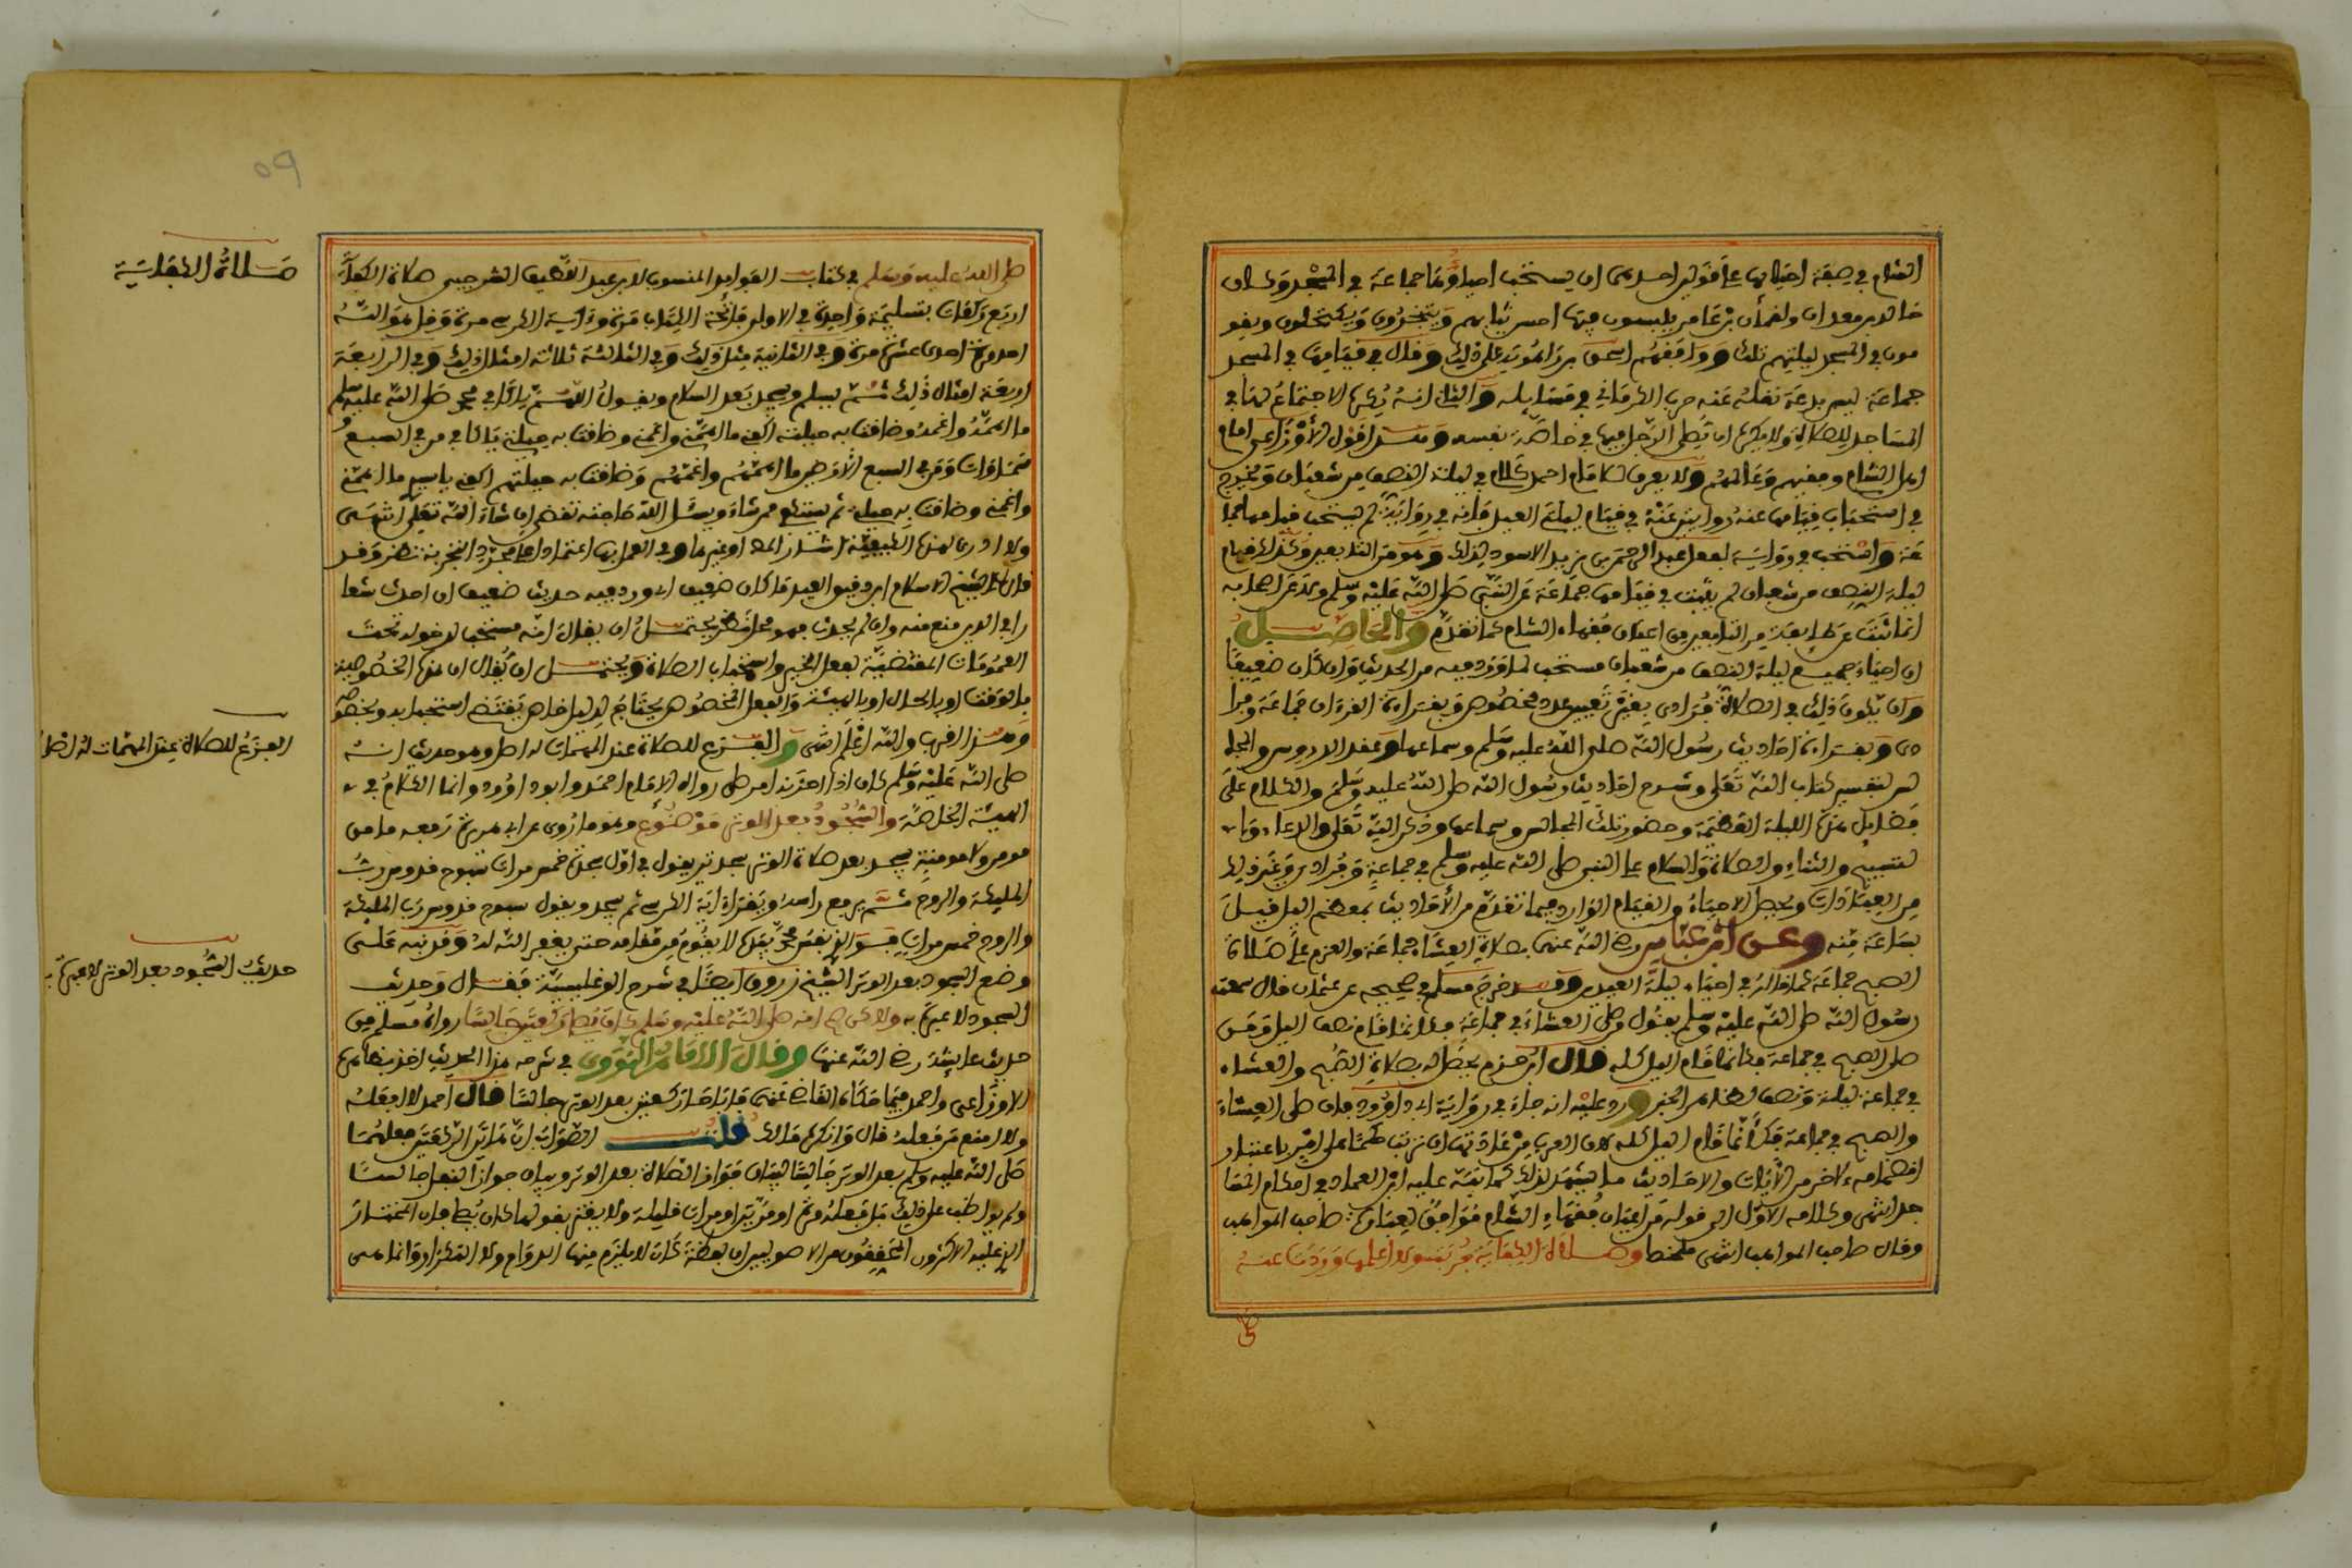 الشام في صفة احيائها على قولين احدهما ان يستحب احياوها جماعة في المسجد وكان
خالد بن معدان ولقمان بن عامر يلبسون فيها احسن ثيابهم ويتبخرون ويكتحلون ويقو
مون في المسجد ليلتهم تلك ووافقهم اسحق بن راهويه على ذلك وقال في قيامها في المسجد
جماعة ليس ببدعة نقله عنه حرب الكرماني في مسايله والثاني انه يكره الاجتماع لها في
المساجد للصلاة ولا يكره ان يصلي الرجل فيها في خاصة نفسه وهذا قول الاوزاعي امام
اهل الشام وفقيههم وعالمهم ولا يعرف للامام احمد كلام في ليلة النصف من شعبان ويخرج
في استحباب قيامها عنه روايتين عنه في قيام ليلتي العيد فانه في رواية لم يستحب قيامها جما
عة واستحبه في رواية لفعل عبد الرحمن بن يزيد الاسود لذلك وهو من التابعين وكذلك قيام
ليلة النصف من شعبان لم يثبت في قيامها جماعة عن النبي صلى الله عليه وسلم ولا عن اصحابه
انما ثبت عن طايفة من التابعين من اعيان فقهاء الشام كما تقدم والحاصل
ان احياء جميع ليلة النصف من شعبان مستحب لما ورد فيه من الحديث وان كان ضعيفا
وان يكون ذلك في الصلاة فرادى بغير تعيين عدد مخصوص وبقراءة القرءان جماعة وفرا
دى وبقراءة احاديث رسول الله صلى الله عليه وسلم وسماعها وعقد الدروس والمجا
لس لتفسير كتاب الله تعالى وشرح احاديث رسول الله صلى الله عليه وسلم والكلام على
فضايل هذه الليلة العظيمة وحضور تلك المجالس وسماعها وذكر الله تعالى والدعاء وبا
لتسبيح والثناء والصلاة والسلام على النبي صلى الله عليه وسلم في جماعة وفرادى وغير ذلك
من العبادات ويحصل الاحياء والقيام الوارد فيما تقدم من الاحاديث بمعظم الليل قيل
بساعة منه وعن ابن عباس رضي الله عنهما بصلاة العشاء جماعة والعزم على صلاة
الصبح جماعة كما قالوه في احياء ليلة العيدين وقد خرج مسلم في صحيحه عن عثمان قال سمعت
رسول الله صلى الله عليه وسلم يقول من صلى العشاء في جماعة فكانما قام نصف الليل ومن
صلى الصبح في جماعة فكانما قام الليل كله قال ابن حزم يحصل له بصلاة الصبح والعشاء
في جماعة ليلة ونصف لظاهر الخبر ورد عليه انه جاء في رواية ابي داوود فان صلى العشاء
والصبح في جماعة فكأنما قام الليل كله لان العرب من عادتها ان ترتب حكما على امرين باعتبار
انضمامه للاخر من الايات والاحاديث ما يشهد لذلك كما نبه عليه ابن العماد في احكام المسا
جد انتهى وكلامه الاول الى قوله من اعيان فقهاء الشام موافق لعبارة صاحب المواهب
وقال صاحب المواهب انتهى ملخصا وصلاة الكفاية
صلى
صلى الله عليه وسلم في كتاب الفوايد المنسوب لابن عبد اللطيف الشرجي صلاة الكفاية
اربع ركعات بتسليمة واحدة في الاولى فاتحة الكتاب مرة وءاية الكرسي مرة وقل هو الله
احد مرة احدى عشرة مرة وفي الثانية مثل ذلك وفي الثالثة ثلاثة امثال ذلك وفي الرابعة
اربعة امثال ذلك ثم يسلم ويسجد بعد السلام ويقول اللهم يا كافي محمد صلى الله عليه وسلم
ما اهمه واغمه وضاقت به حيلته اكفني ما اهمني واغمني وضاقت به حيلتي يا كافي من في السبع
سماوات ومن في السبع الارضين ما اهمهم واغمهم وضاقت به حيلتهم اكفني يا سيدي ما اهمني
واغمني وضاقت به حيلتي ثم يستغيث وبسئل الله حاجته تقضى ان شاء الله تعالى انتهى
ولا ادري لهذه الكيفية
قال الشيخ الاسلام ابن دقيق العيد ما كان ضعيفا اي ورد فيه حديث ضعيف ان احدث شعا
را في الدين منع منه وان لم يحدث فهو محل نظر يحتمل ان يقال انه مستحب لدخوله تحت
العمومات المقتضية لفعل الخير واستحباب الصلاة ويحتمل ان يقال ان هذه الخصوصية
بالوقت او بالحال او بالهيئة والفعل المخصوص يحتاج لدليل خاص يقتضي استحبابه بخصوصه
وهذا اقرب والله اعلم انتهى والفزع للصلاة عند المهمات له اصل وهو حديث انه
صلى الله عليه وسلم كان اذا احزنه امر صلى رواه الامام احمد وابو داوود وانما الكلام في
الهيئة الخاصة والسجود بعد الوتر موضوع وهو ما روي عن ابي هريرة رفعه ما من
مومن ولا مومنة يسجد بعد صلاة الوتر سجدتين يقول في اول سجدة خمس مرات سبوح قدوس رب
المليكة والروح ثم يرفع راسه ويقرا ءاية الكرسي ثم يسجد ويقول سبوح قدوس رب المليكة
والروح خمس مرات فوالذي نفس محمد بيده لا يقوم من مقامه حتى يغفر الله له وقد نبه على
وضع السجود بعد الوتر الشيخ زروق ايضا في شرح الوغليسية فقال وحديث
السجود لا عبرة به ولا كره انه صلى الله عليه وسلم كان يصلي ركعتين جالسا رواه مسلم من
حديث عايشة رضي الله عنها وقال الامام النووي في شرحه هذا الحديث اخذ بظاهره
الاوزاعي واحمد فيما حكاه القاضي عنهما فاباحا ركعتين بعد الوتر جالسا قال احمد لا افعله
ولا امنع من فعله قال وانكره مالك قلت الصواب ان هاتين الركعتين فعلهما
صلى الله عليه وسلم بعد الوتر جالسا لبيان جواز الصلاة بعد الوتر وبيان جواز النفل جالسا
ولم يواظب على ذلك بل فعله مرة او مرتين او مرات قليلة ولا يغتر بقولها كان يصلي فان المختار
الذي عليه الاكثرون المحققون من الاصوليين ان لفظة كان لا يلزم منها الدوام ولا التكرار وانما هي
صلاة الكفاية
الفزع للصلاة عند المهمات له اصل
حديث السجود بعد الوتر لا عبرة به
٥٩